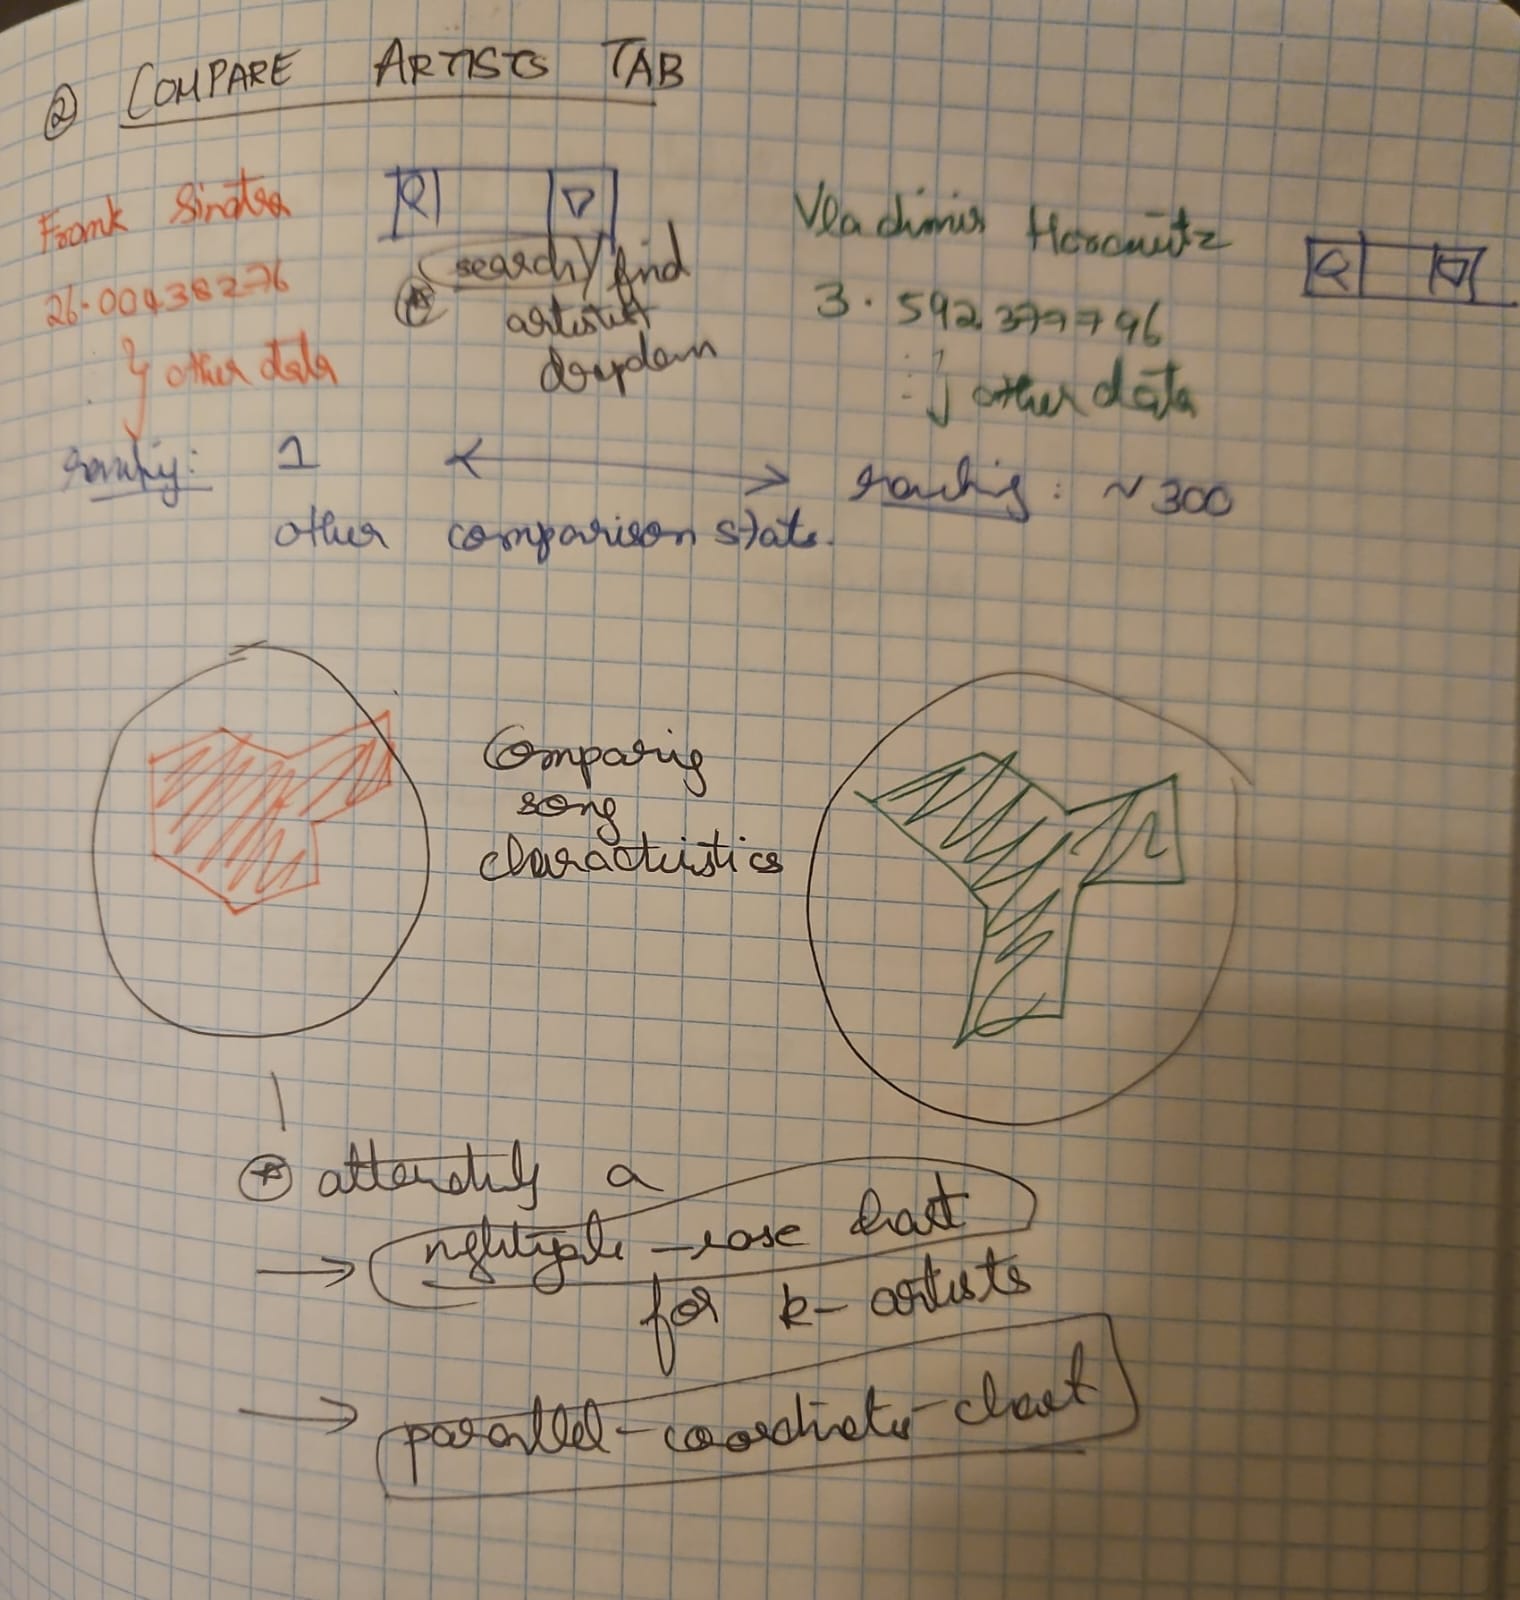 ② COMPARE ARTISTS TAB
Frank Sinatra
26.00438276
other data
search/find
artist
dropdown
Vladimir Horowitz
3.592377796
other data
ranking: 1
ranking: ~300
other comparison stats.
Comparing
song
characteristics
a
nightingale-rose chart
for k-artists
parallel-coordinate-chart